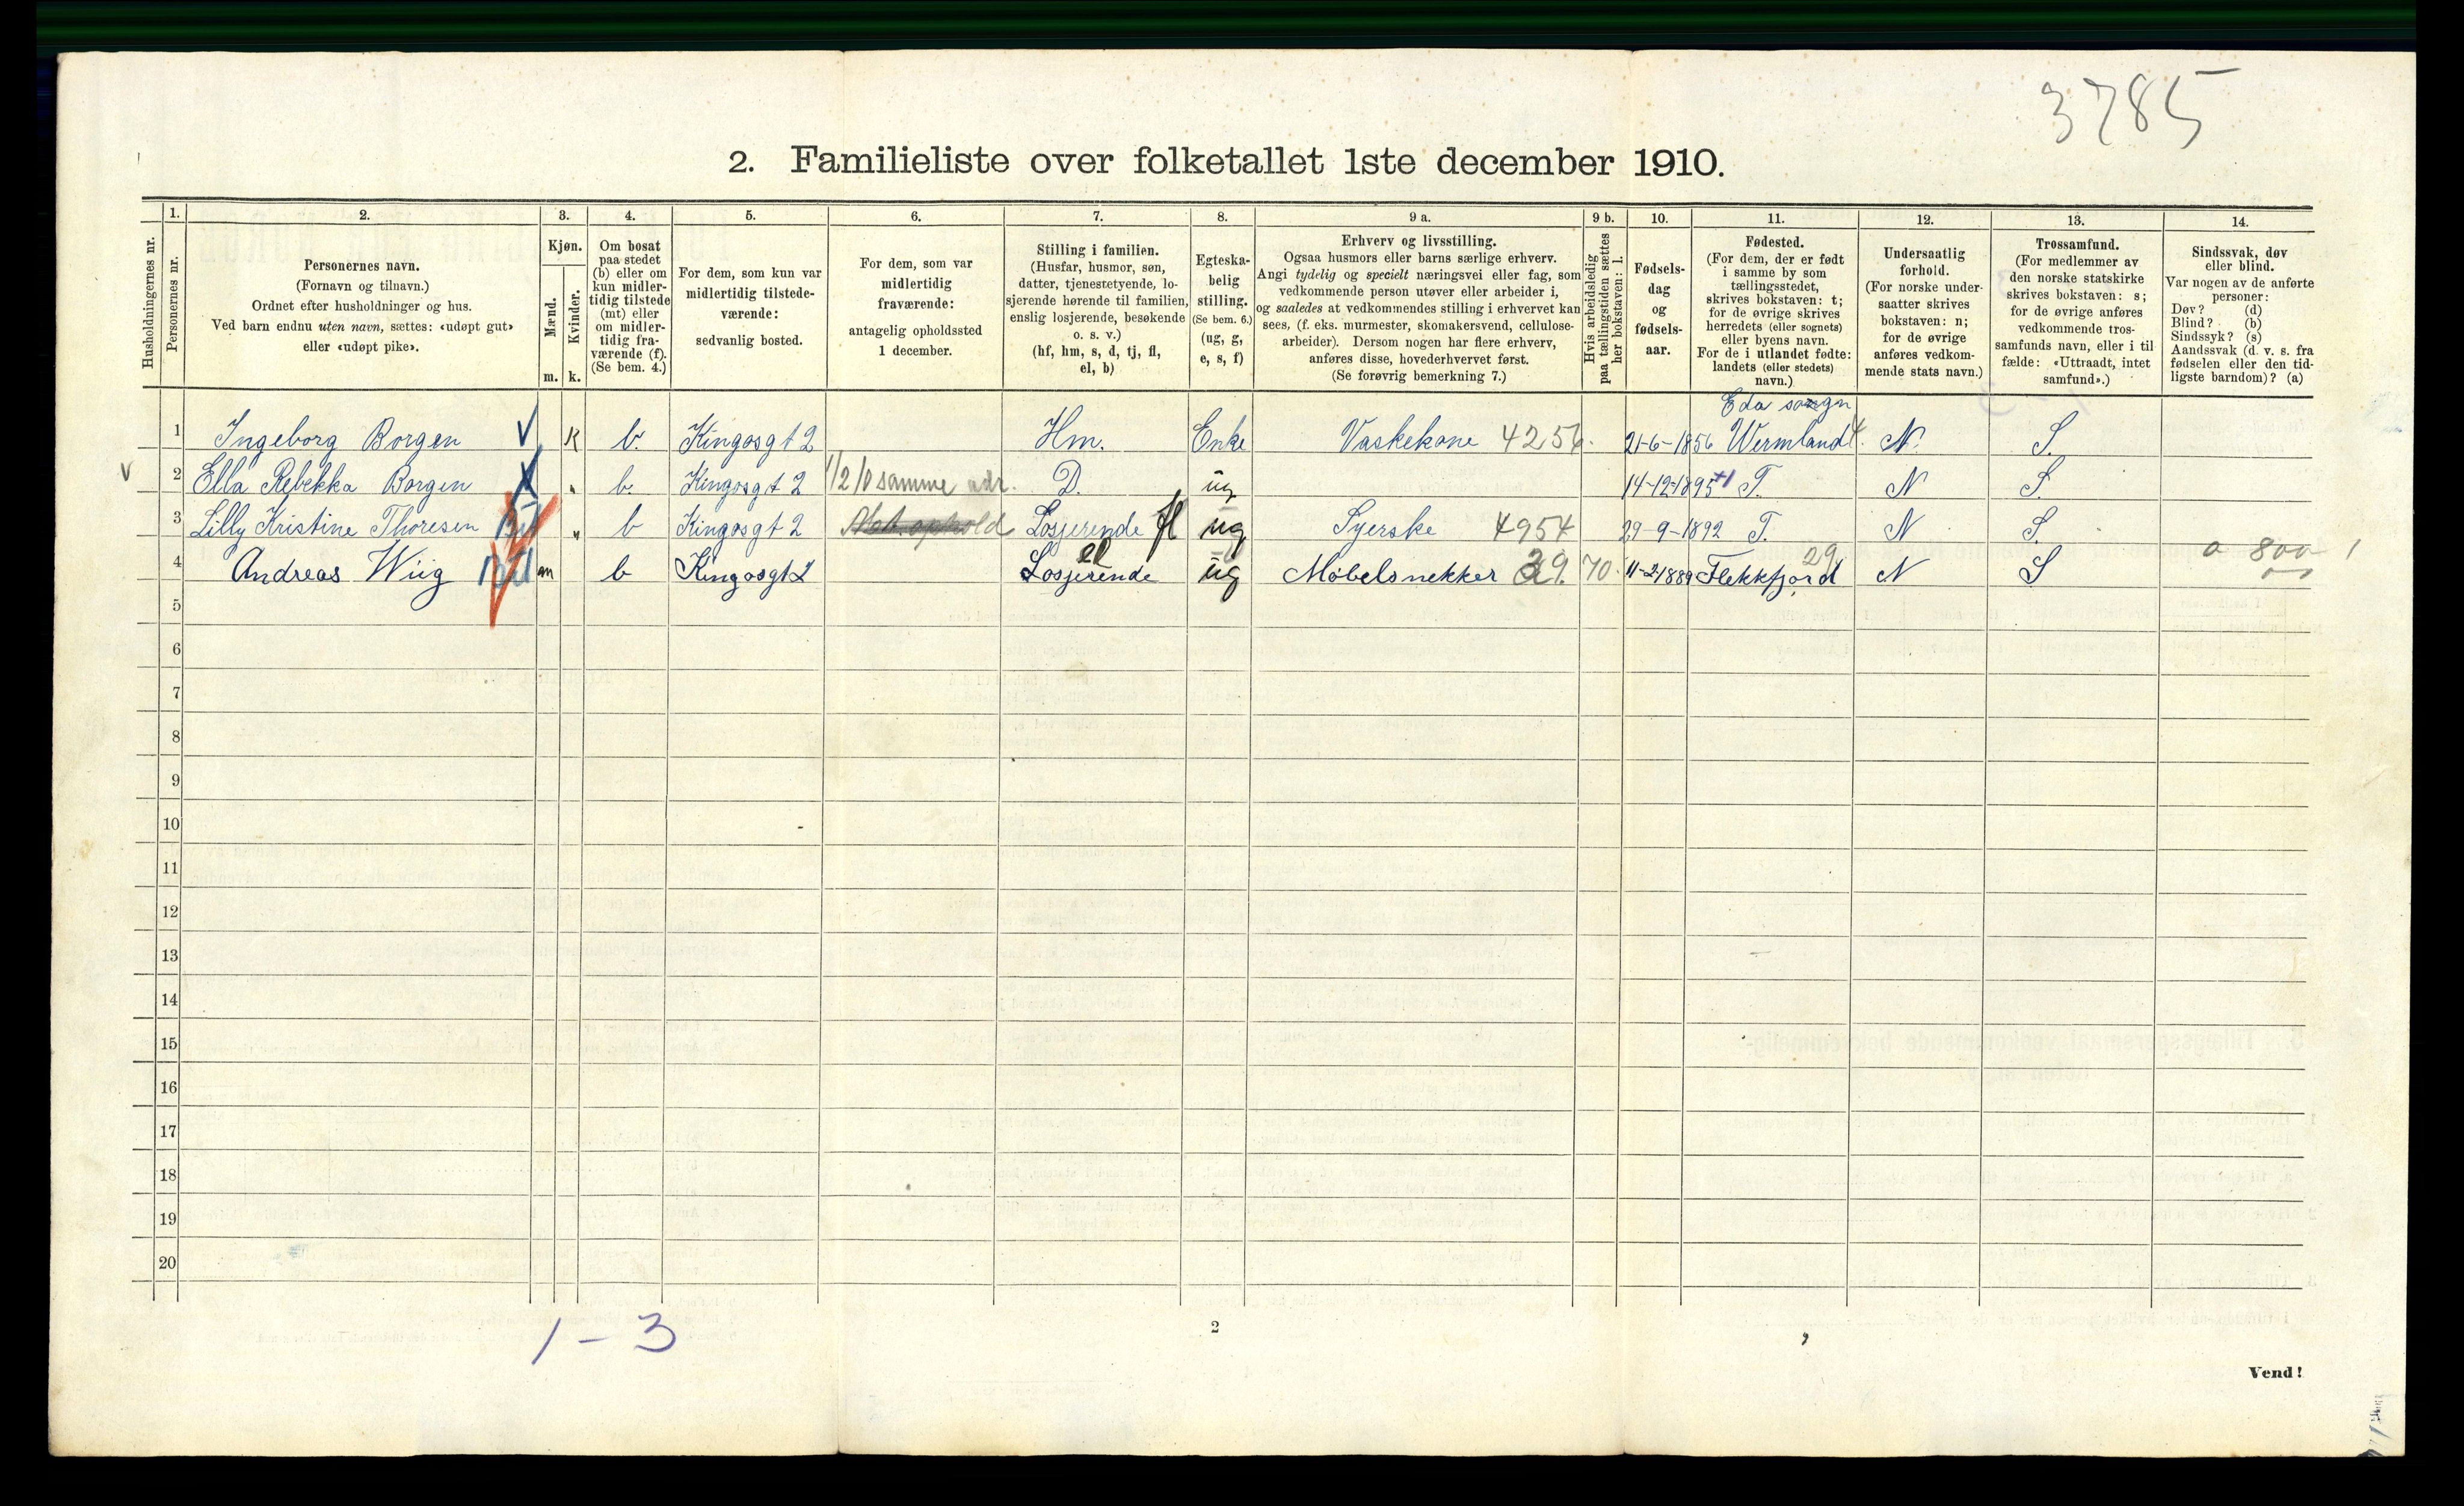 3785
2. Familieliste over folketallet 1ste december 1910.
Husholdningernes nr.
1.
Personernes nr.
2.
Personernes navn.
(Fornavn og tilnavn.)
Ordnet efter husholdninger og hus.
Ved barn endnu uten navn, sættes: «udøpt gut»
eller «udøpt pike».
3.
Kjøn.
Mænd.
Kvinder.
m. k.
4.
Om bosat
paa stedet
(b) eller om
kun midler-
tidig tilstede
(mt) eller
om midler-
tidig fra-
værende (f).
(Se bem. 4.)
5.
For dem, som kun var
midlertidig tilstede-
værende:
sedvanlig bosted.
6.
For dem, som var
midlertidig
fraværende:
antagelig opholdssted
1 december.
7.
Stilling i familien.
(Husfar, husmor, søn,
datter, tjenestetyende, lo-
sjerende hørende til familien,
enslig losjerende, besøkende
o. s. v.)
(hf, hm, s, d, tj, fl,
el, b)
8.
Egteska-
belig
stilling.
(Se bem. 6.)
(ug, g,
e, s, f)
9 a.
Erhverv og livsstilling.
Ogsaa husmors eller barns særlige erhverv.
Angi tydelig og specielt næringsvei eller fag, som
vedkommende person utøver eller arbeider i,
og saaledes at vedkommendes stilling i erhvervet kan
sees, (f. eks. murmester, skomakersvend, cellulose-
arbeider). Dersom nogen har flere erhverv,
anføres disse, hovederhvervet først.
(Se forøvrig bemerkning 7.)
9 b.
Hvis arbeidsledig
paa tællingstiden sættes
her bokstaven: l.
10.
Fødsels-
dag
og
fødsels-
aar.
11.
Fødested.
(For dem, der er født
i samme by som
tællingsstedet,
skrives bokstaven: t;
for de øvrige skrives
herredets (eller sognets)
eller byens navn.
For de i utlandet fødte:
landets (eller stedets)
navn.)
12.
Undersaatlig
forhold.
(For norske under-
saatter skrives
bokstaven: n;
for de øvrige
anføres vedkom-
mende stats navn.)
13.
Trossamfund.
(For medlemmer av
den norske statskirke
skrives bokstaven: s;
for de øvrige anføres
vedkommende tros-
samfunds navn, eller i til
fælde: «Uttraadt, intet
samfund».)
14.
Sindssvak, døv
eller blind.
Var nogen av de anførte
personer:
Døv? (d)
Blind? (b)
Sindssyk? (s)
Aandssvak (d. v. s. fra
fødselen eller den tid-
ligste barndom)? (a)
Eda sogn
1 Ingeborg Borgen V K b. Kingosgt 2 Hm. Enke Vaskekone 4256. 21-6-1856 Wermland N. S.
V 2 Ella Rebekka Borgen " b. Kingosgt 2 1/2 10 samme adr. D. ug 14-12-1895 T. N S
3 Lilly Kristine Thoresen " b Kingosgt 2 Losjerende fl ug Syerske 4954 29-9-1892 T. N S.
4 Andreas Wiig m b Kingosgt 2 el Losjerende ug Møbelsnekker 29. 70. 11-2-1889 Flekkfjord 29 N S 0 800 1
5
6
7
8
9
10
11
12
13
14
15
16
17
18
19
20
1 - 3
2
Vend!